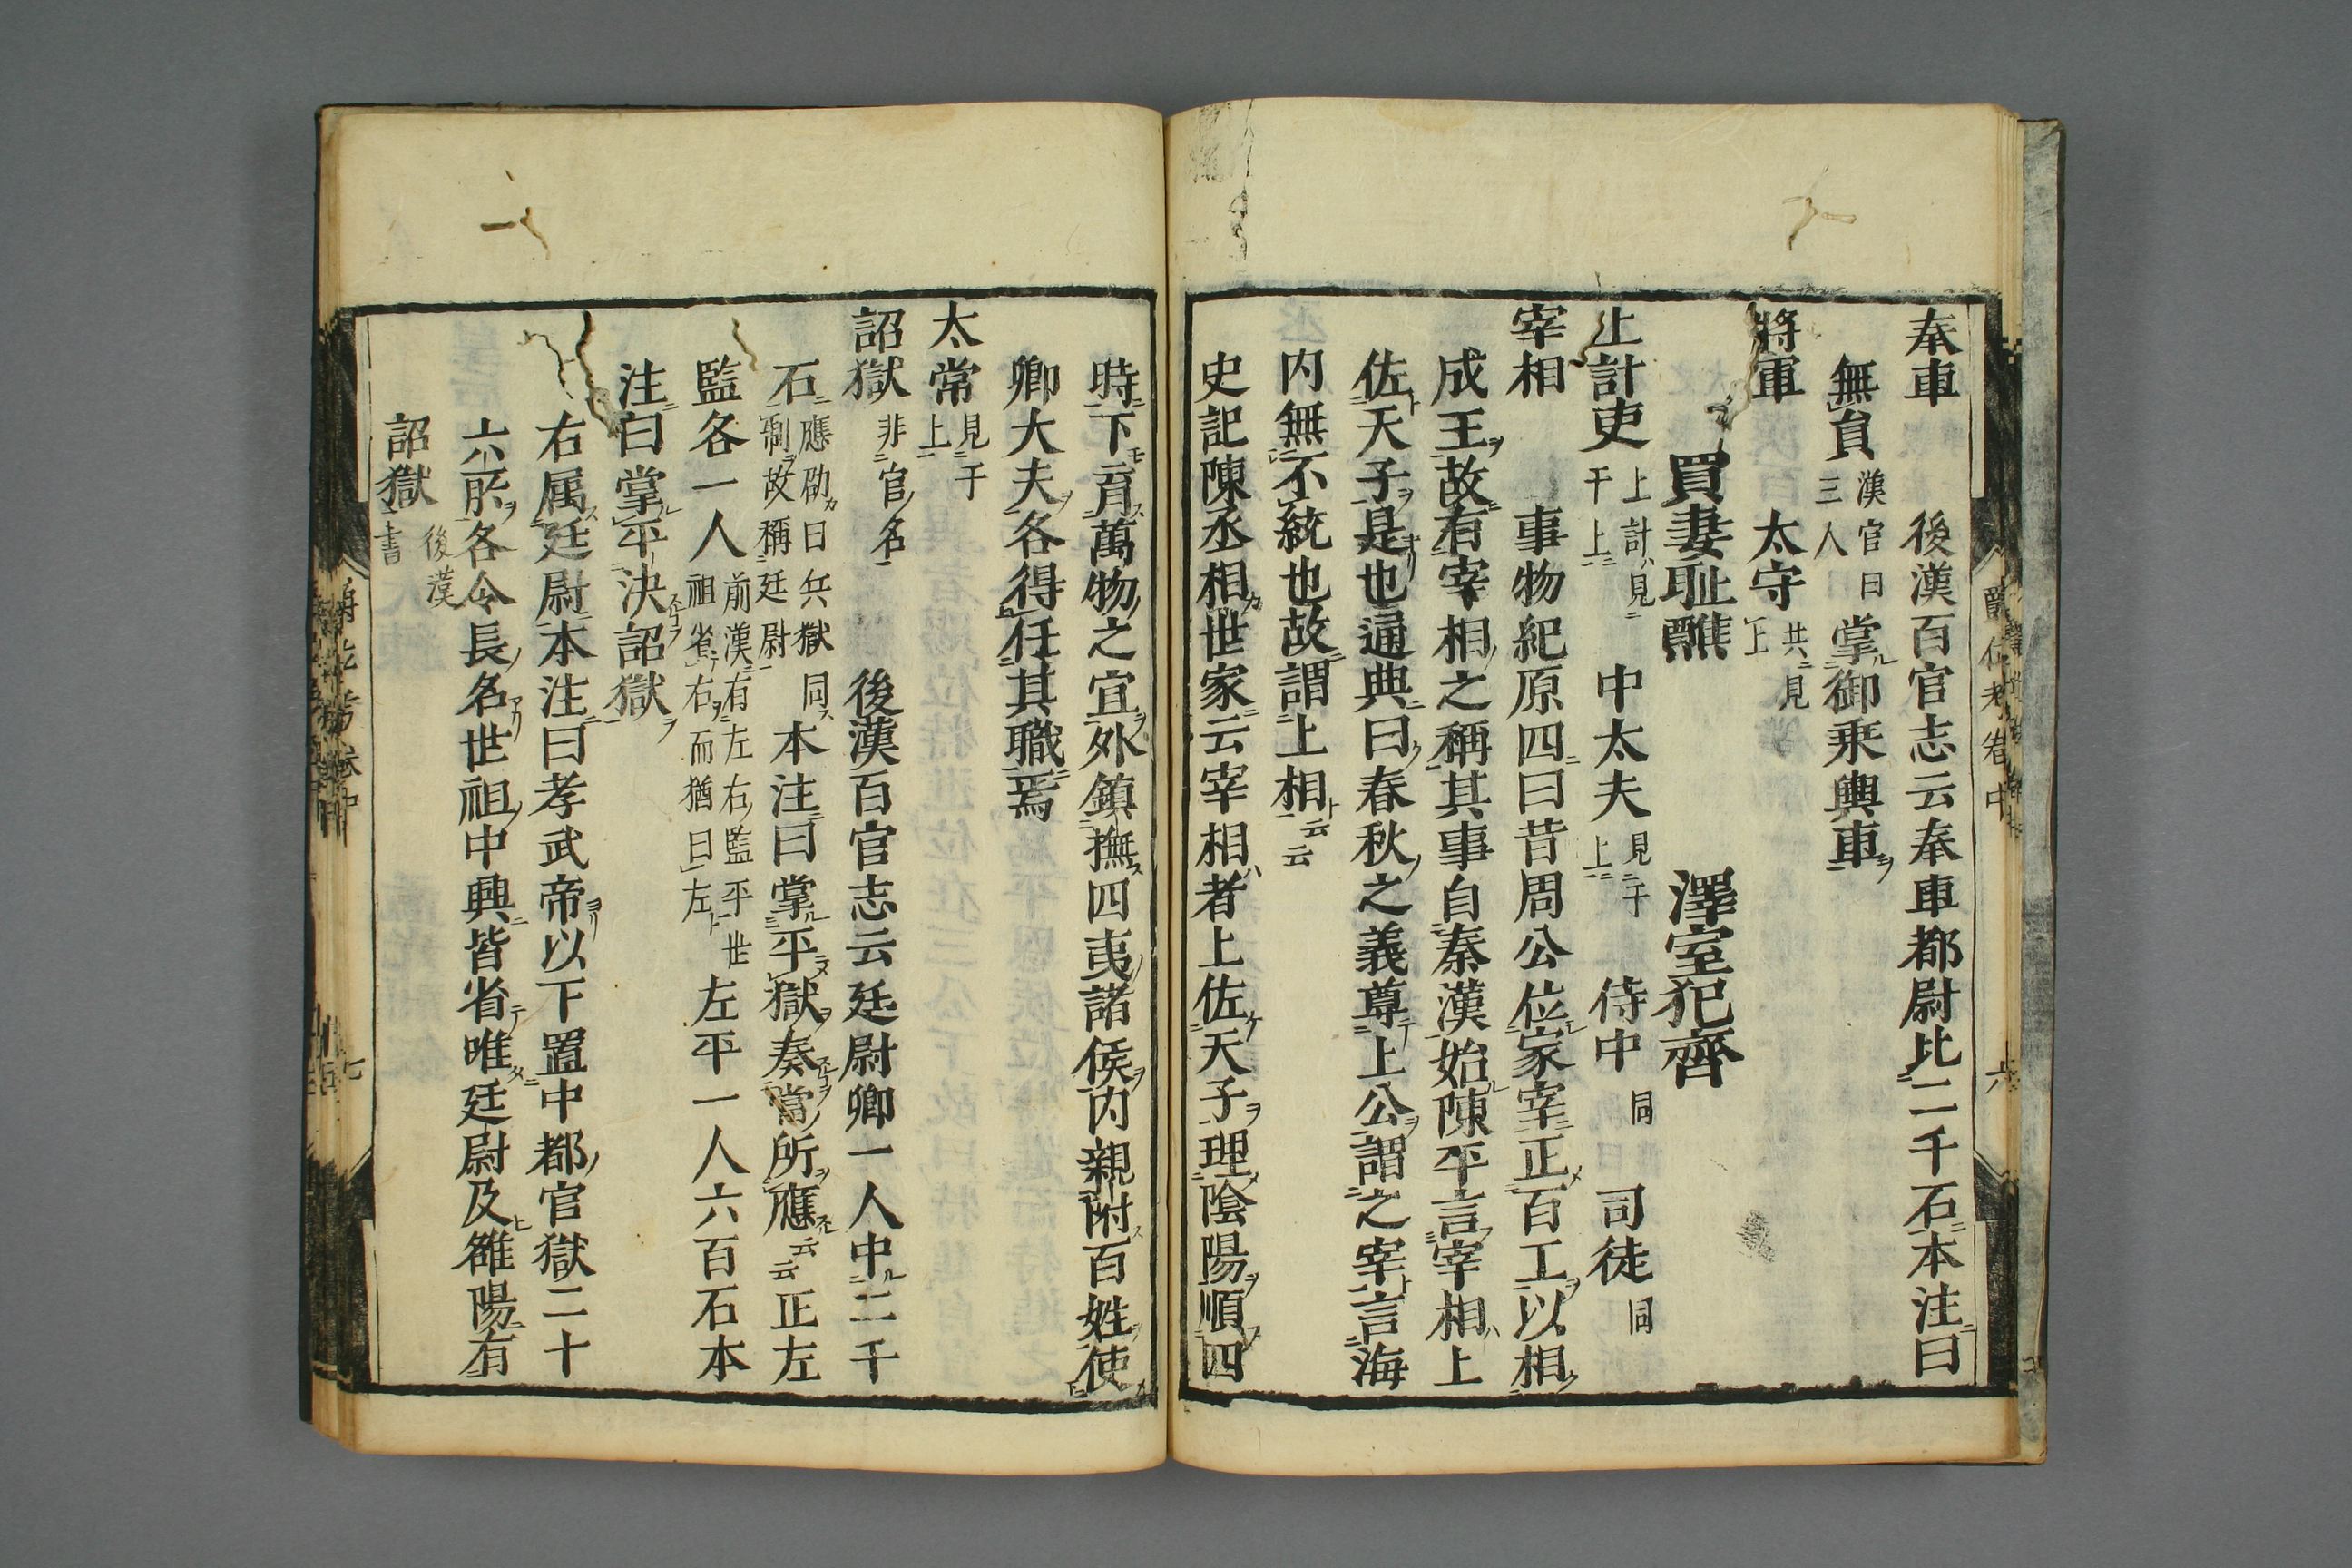 奉車　後漢百官志云奉車都尉比二千石本注曰
無員漢官曰三人掌御乘輿車
將軍　太守共見上
買妻耻醮　澤室犯齊
上計吏上計見于上　中太夫見于上　侍中同　司徒同
宰相　事物紀原四曰昔周公位冢宰正百工以相
成王故有宰相之稱其事自秦漢始陳平言宰相上
佐天子是也通典曰春秋之義尊上公謂之宰言海
内無不統也故謂上相云云
史記陳丞相世家云宰相者上佐天子理陰陽順四
時下育萬物之宜外鎮撫四夷諸侯内親附百姓使
卿大夫各得任其職焉
太常見于上
詔獄非官名　後漢百官志云廷尉卿一人中二千
石應劭曰兵獄同制故稱廷尉本注曰掌平獄奏當所應云云正左
監各一人前漢有左右監平世祖省右而猶曰左左平一人六百石本
注曰掌平決詔獄
右属廷尉本注曰孝武帝以下置中都官獄二十
六所各令長名世祖中興皆省唯廷尉及雒陽有
詔獄後漢書
爵位考卷中
六
七